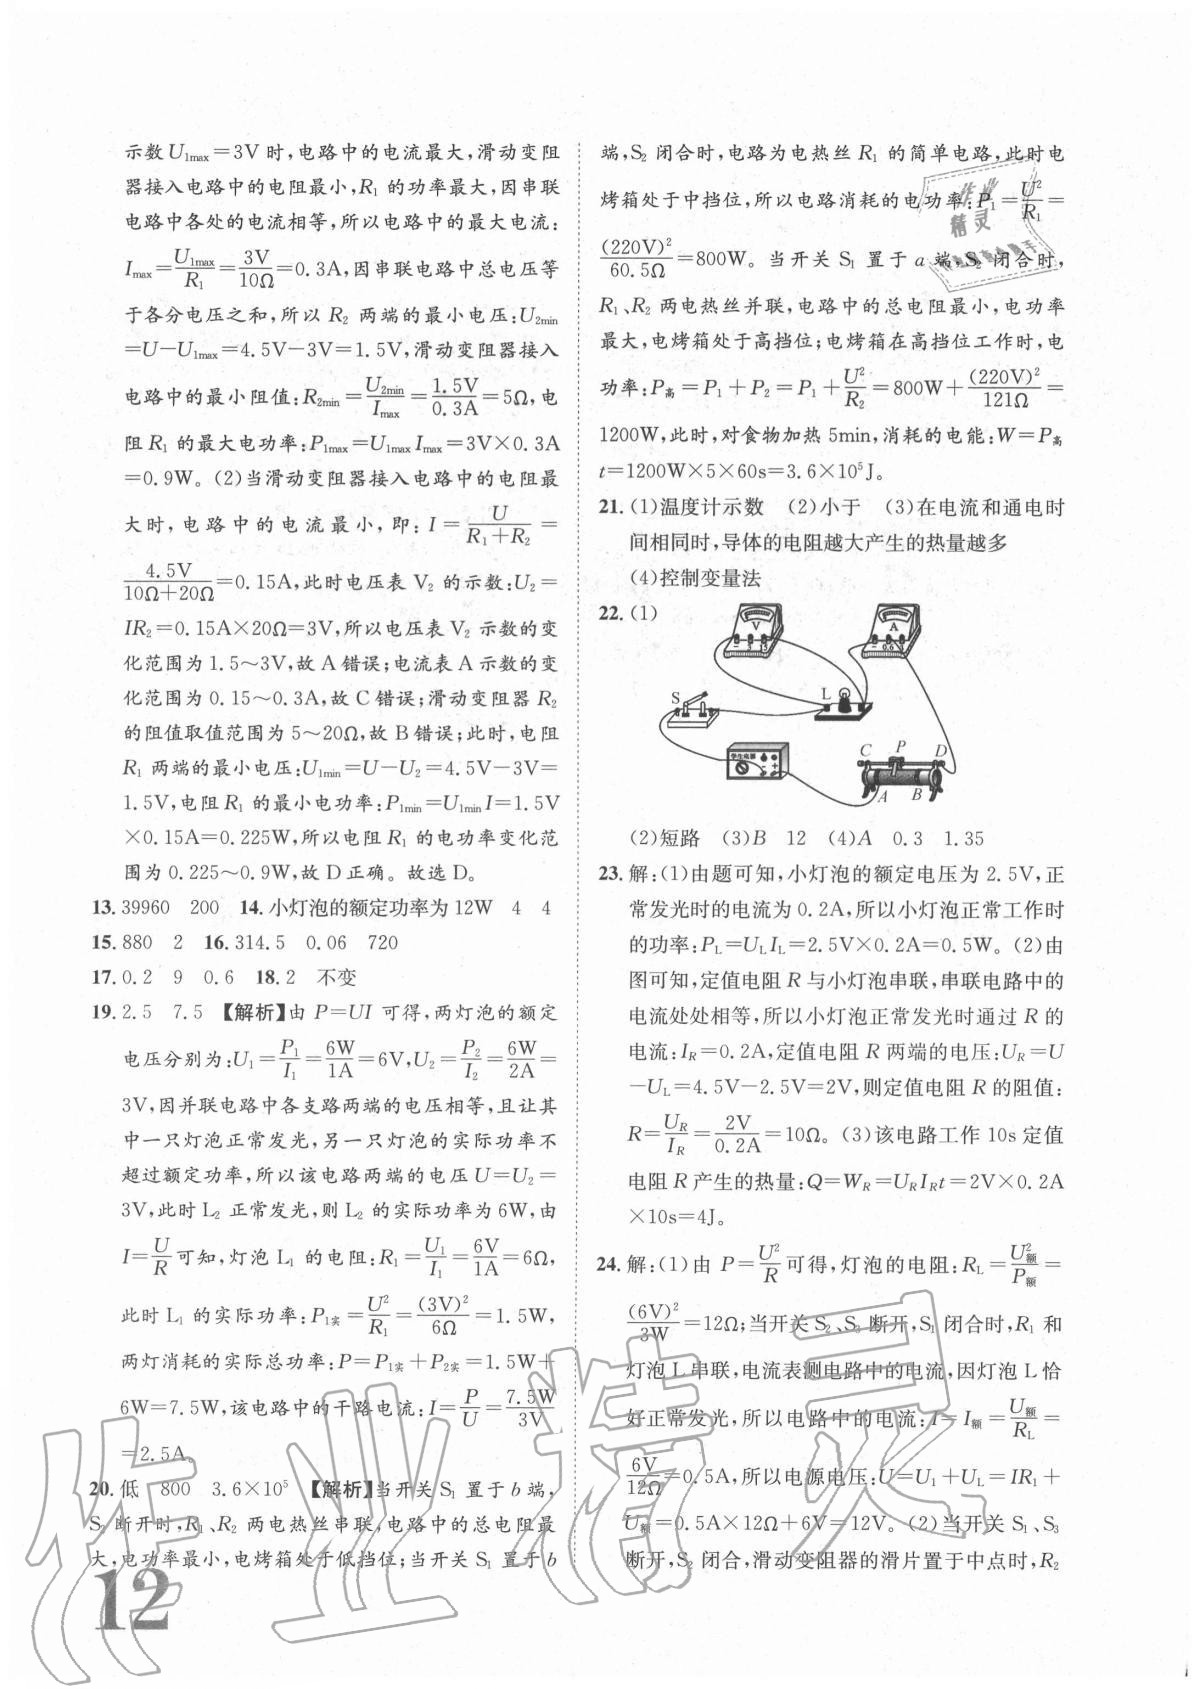 示数U₁max=3V时,电路中的电流最大,滑动变阻
器接入电路中的电阻最小,R₁的功率最大,因串联
电路中各处的电流相等,所以电路中的最大电流:
Imax=U₁max/R₁=3V/10Ω=0.3A,因串联电路中总电压等
于各分电压之和,所以 R₂ 两端的最小电压:U₂min
=U-U₁max=4.5V-3V=1.5V,滑动变阻器接入
电路中的最小阻值:R₂min=U₂min/Imax=1.5V/0.3A=5Ω,电
阻R₁的最大电功率:P₁max=U₁maxImax=3V×0.3A
=0.9W。(2)当滑动变阻器接入电路中的电阻最
大时,电路中的电流最小,即:I=U/(R₁+R₂)=
4.5V/(10Ω+20Ω)=0.15A,此时电压表 V₂ 的示数:U₂=
IR₂=0.15A×20Ω=3V,所以电压表V₂ 示数的变
化范围为1.5~3V,故A错误;电流表A示数的变
化范围为0.15~0.3A,故C错误;滑动变阻器R₂
的阻值取值范围为5~20Ω,故B错误;此时,电阻
R₁ 两端的最小电压:U₁min=U-U₂=4.5V-3V=
1.5V,电阻R₁的最小电功率:P₁min=U₁minI=1.5V
×0.15A=0.225W,所以电阻R₁的电功率变化范
围为0.225~0.9W,故D正确。故选D。
13.39960 200 14.小灯泡的额定功率为12W 4 4
15.880 2 16.314.5 0.06 720
17.0.2 9 0.6 18.2 不变
19.2.5 7.5 【解析】由 P=UI 可得,两灯泡的额定
电压分别为:U₁=P₁/I₁=6W/1A=6V,U₂=P₂/I₂=6W/2A=
3V,因并联电路中各支路两端的电压相等,且让其
中一只灯泡正常发光,另一只灯泡的实际功率不
超过额定功率,所以该电路两端的电压U=U₂=
3V,此时L₂ 正常发光,则L₂的实际功率为6W,由
I=U/R可知,灯泡L₁的电阻:R₁=U₁/I₁=6V/1A=6Ω,
此时L₁的实际功率:P₁实=U²/R₁=(3V)²/6Ω=1.5W,
两灯消耗的实际总功率:P=P₁实+P₂实=1.5W+
6W=7.5W,该电路中的干路电流:I=P/U=7.5W/3V
=2.5A。
20.低 800 3.6×10⁵ 【解析】当开关S₁置于b端,
S₂断开时,R₁、R₂ 两电热丝串联,电路中的总电阻最
大,电功率最小,电烤箱处于低挡位;当开关S₁ 置于b
12
端,S₂ 闭合时,电路为电热丝 R₁ 的简单电路,此时电
烤箱处于中挡位,所以电路消耗的电功率:P₁=U²/R₁=
(220V)²/60.5Ω=800W。当开关 S₁ 置于 a 端,S₂ 闭合时,
R₁、R₂ 两电热丝并联,电路中的总电阻最小,电功率
最大,电烤箱处于高挡位;电烤箱在高挡位工作时,电
功率:P高=P₁+P₂=P₁+U²/R₂=800W+(220V)²/121Ω=
1200W,此时,对食物加热5min,消耗的电能:W=P高
t=1200W×5×60s=3.6×10⁵J。
21.(1)温度计示数 (2)小于 (3)在电流和通电时
间相同时,导体的电阻越大产生的热量越多
(4)控制变量法
22.(1)
V
- 3 15
A
- 0.6 3
S
L
学生电源
C P D
A B
(2)短路 (3)B 12 (4)A 0.3 1.35
23.解:(1)由题可知,小灯泡的额定电压为2.5V,正
常发光时的电流为0.2A,所以小灯泡正常工作时
的功率:PL=ULIL=2.5V×0.2A=0.5W。(2)由
图可知,定值电阻R与小灯泡串联,串联电路中的
电流处处相等,所以小灯泡正常发光时通过R的
电流:IR=0.2A,定值电阻R两端的电压:UR=U
-UL=4.5V-2.5V=2V,则定值电阻R的阻值:
R=UR/IR=2V/0.2A=10Ω。(3)该电路工作10s定值
电阻R产生的热量:Q=WR=URIRt=2V×0.2A
×10s=4J。
24.解:(1)由 P=U²/R可得,灯泡的电阻:RL=U²额/P额=
(6V)²/3W=12Ω;当开关S₂、S₃断开,S₁闭合时,R₁和
灯泡L串联,电流表测电路中的电流,因灯泡L恰
好正常发光,所以电路中的电流:I=I额=U额/RL=
6V/12Ω=0.5A,所以电源电压:U=U₁+UL=IR₁+
U额=0.5A×12Ω+6V=12V。(2)当开关S₁、S₃
断开,S₂ 闭合,滑动变阻器的滑片置于中点时,R₂
作业精灵
作业
精灵